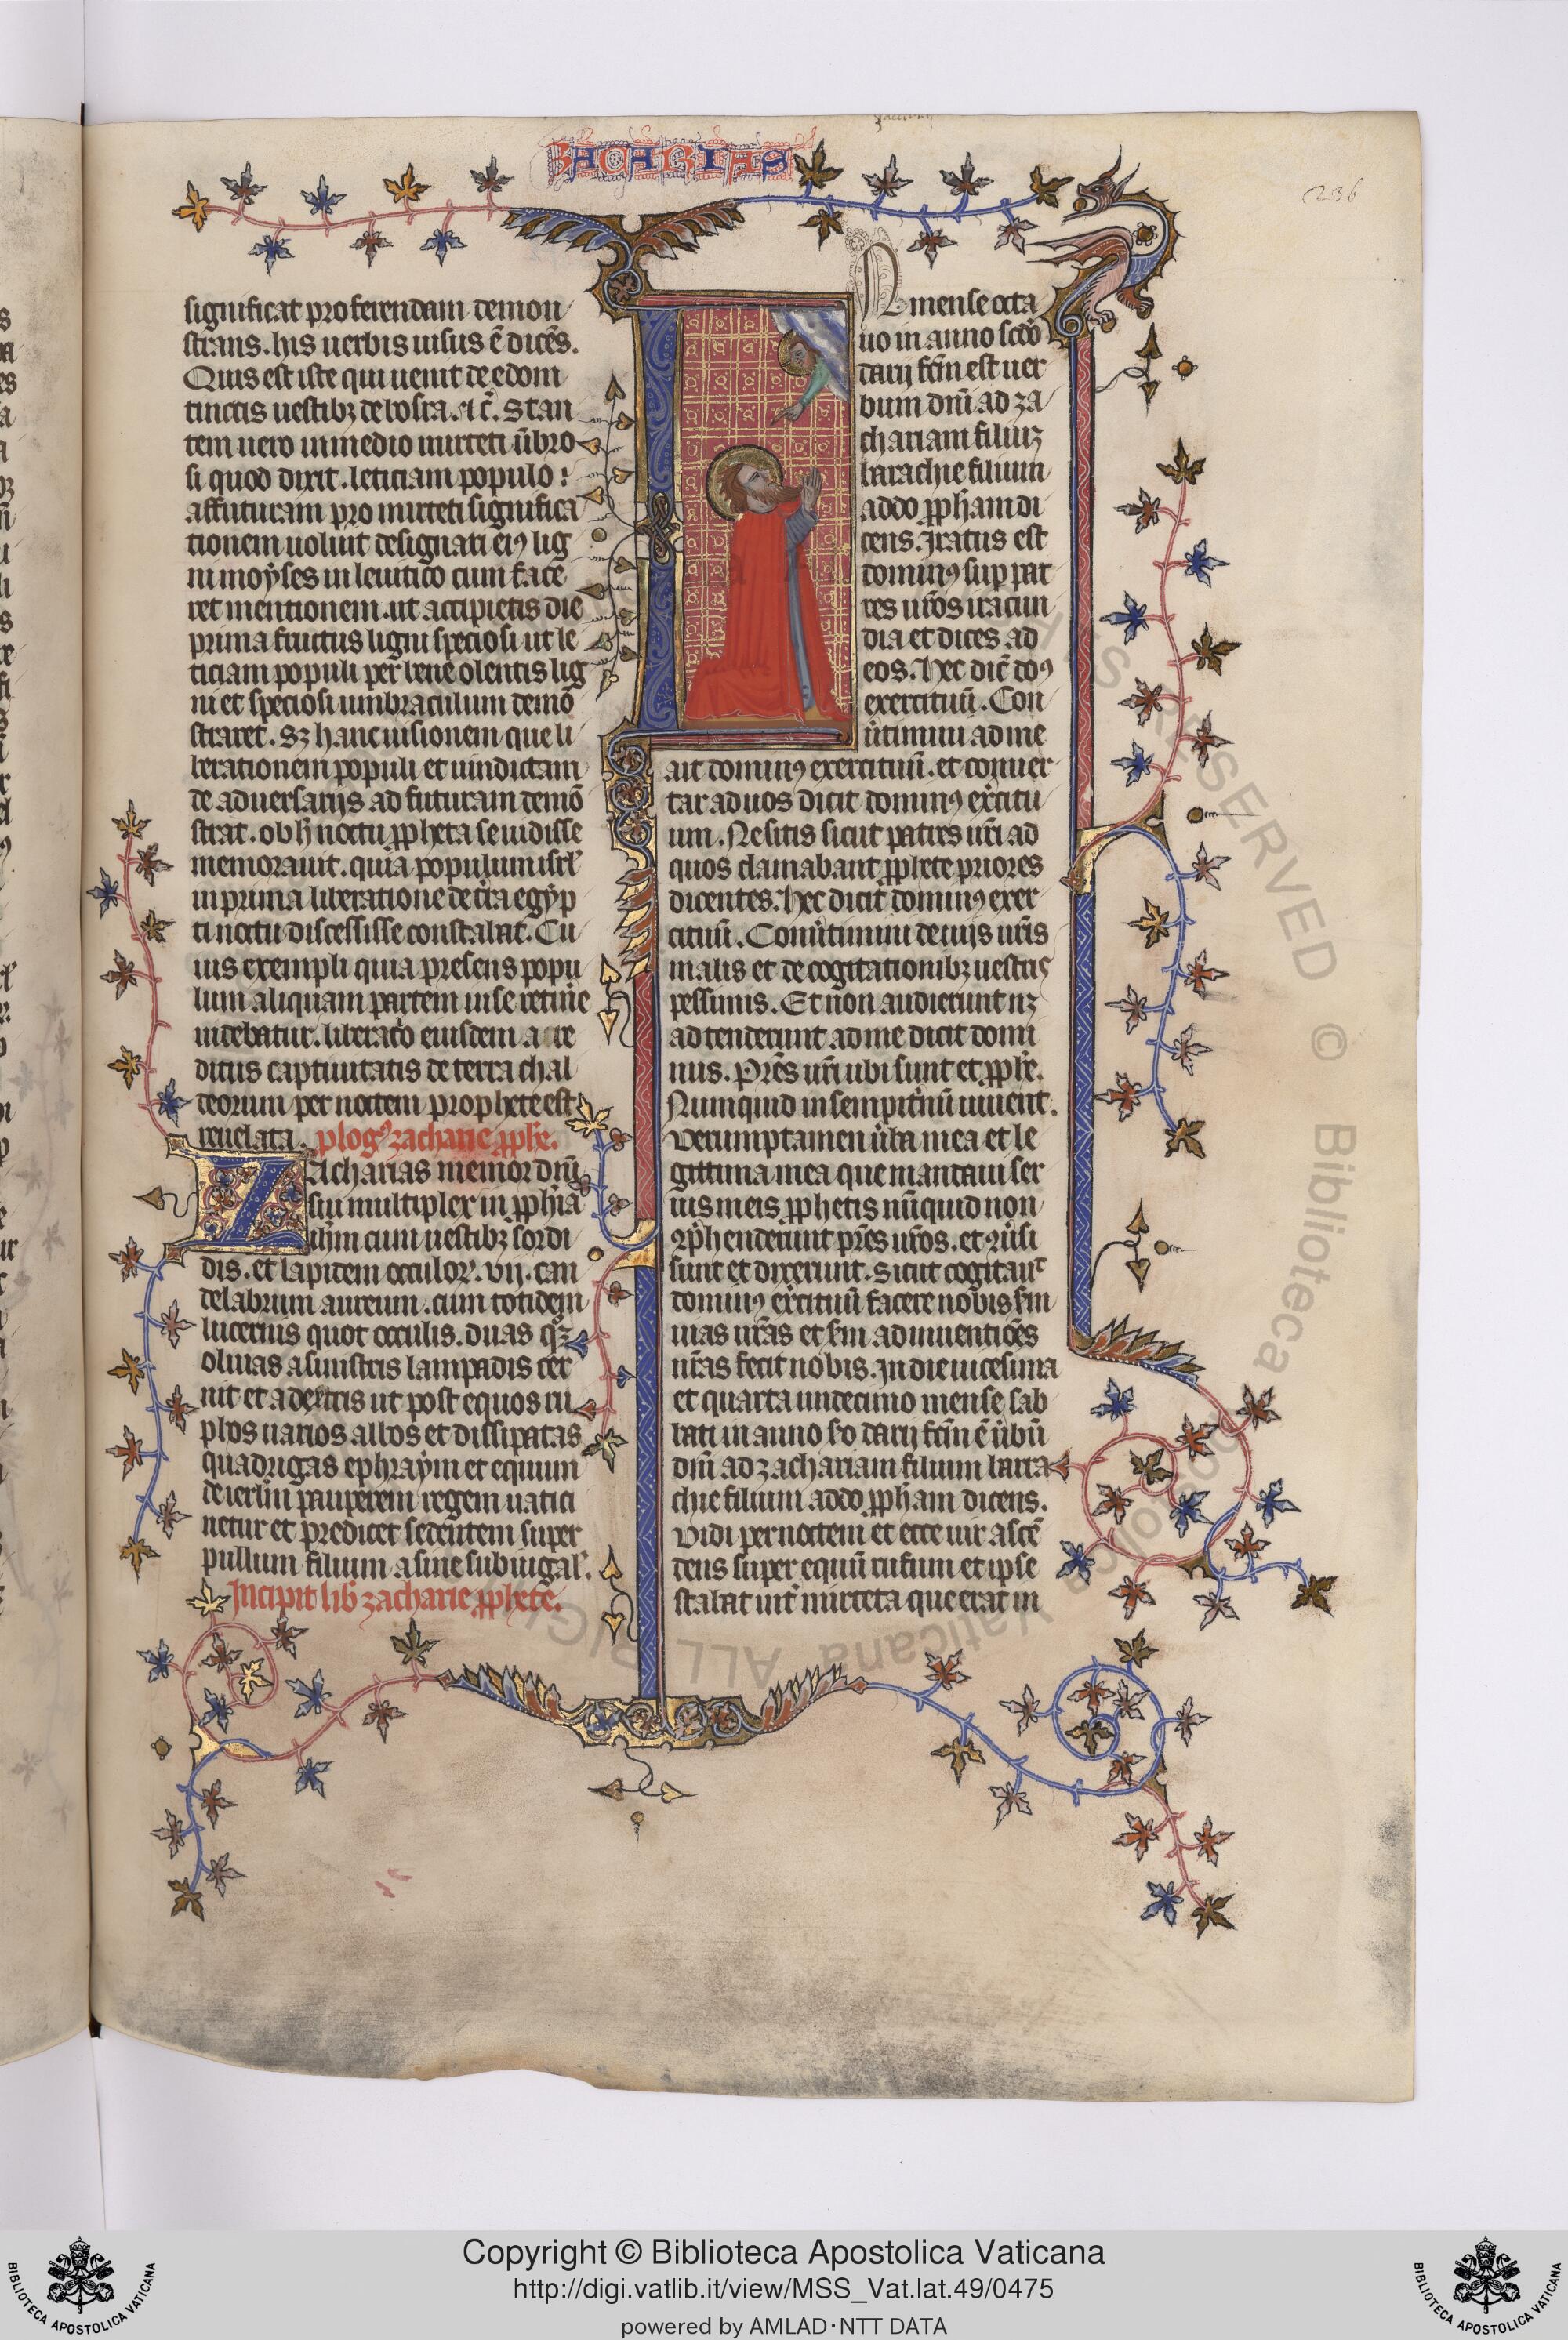 ZACARIAS
236
significat proferendam demon
strans. his uerbis uisus ē dicēs.
Quis est iste qui uenit de edom
tinctis uestibꝫ de bosra. ⁊ c̄. Stan
tem uero in medio mirteti ūbro
si quod dixit. leticiam populo:
affuturam pro mirteti significa
tionem uoluit designari eiꝰ lig
ni moyses in leuitico cum face
ret mentionem. ut accipietis die
prima fructus ligni speciosi ut le
ticiam populi per bene olentis lig
ni et speciosi umbraculum demō
straret. Sꝫ hanc uisionem que li
berationem populi et uindictam
de aduersarijs ad futuram demō
strat. ob h̄ noctu ꝓpheta se uidisse
memorauit. quia populum isrl̄
in prima liberatione de t̄ra egyp
ti noctu discessisse constabat. Cu
ius exempli quia presens popu
lum aliquam partem in se retin̄e
uidebatur. liberat̄o eiusdem a re
ditus captiuitatis de terra chal
deorum per noctem prophete est
reuelata. ꝓlogꝰ zacharie ꝓph̄e.
ZAcharias memor dn̄i
sui multiplex in ꝓph̄ia
ih̄m cum uestibꝫ sordi
dis. et lapidem occuloꝝ. vij. can
delabrum aureum. cum totidem
lucernis quot occulis. duas qꝫ
oliuas a sinistris lampadis cer
nit et a dextris ut post equos ru
phos uarios albos et dissipatas
quadrigas ephraym et equum
de ierl̄m pauperem regem uatici
netur et predicet sedentem super
pullum filium asine subiugal̄.
Incipit lib̄ zacharie ꝓphete.
IN mense octa
uo in anno scd̄o
darij fc̄m est uer
bum dn̄i ad za
chariam filiuꝫ
barachie filium
addo ꝓph̄am di
cens. Iratus est
dominꝰ sup pat
res ur̄os iracun
dia et dices ad
eos. Hec dic̄ do9
exercituū. Con
ūtimini ad me
ait dominꝰ exercituū. et conuer
tar ad uos dicit dominꝰ exc̄itu
um. Ne sitis sicut patres ur̄i ad
quos clamabant ꝓph̄ete priores
dicentes. Hec dicit dominꝰ exer
cituū. Conūtimini de uijs ur̄is
malis et de cogitationibꝫ uestris
pessimis. Et non audierunt nꝫ
adtenderunt ad me dicit domi
nus. Pr̄es ur̄i ubi sunt et ꝓph̄e.
Numquid in sempit̄nū uiuent.
Verumptamen ūba mea et le
gittima mea que mandaui ser
uis meis ꝓphetis nūquid non
ꝯp̄henderunt pr̄es ur̄os. et ꝯūsi
sunt et dixerunt. Sicut cogitauͭ
dominꝰ exc̄ituū facere nobis s̄m
uias ur̄as et s̄m adinuentiōes
nr̄as fecit nobis. In die uicesima
et quarta undecimo mense sab
bati in anno s̄o darij fc̄m ē ūbū
dn̄i ad zachariam filium barra
chie filium addo ꝓph̄am dicens.
Vidi per noctem et ecce uir ascē
dens super equū rufum et ipse
stabat int̄ mirteta que erat in
Copyright © Biblioteca Apostolica Vaticana
http://digi.vatlib.it/view/MSS_Vat.lat.49/0475
powered by AMLAD·NTT DATA
BIBLIOTECA APOSTOLICA VATICANA
BIBLIOTECA APOSTOLICA VATICANA